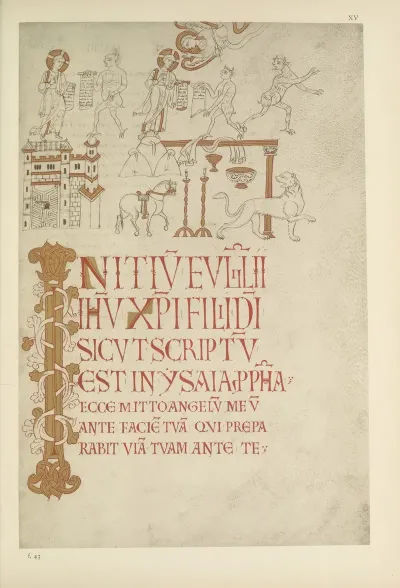 XV
INITIŪ EVḠLII
IH̄V XP̄I FILII DĪ
SICVT SCRIPTŪ
EST IN YSAIA PPH̄A
ECCE MITTO ANGELŪ MEŪ
ANTE FACIĒ TVĀ QVI PREPA
RABIT VIĀ TVAM ANTE TE
f. 43